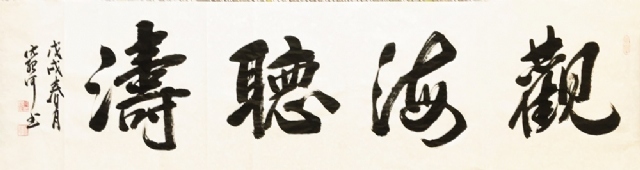 觀海聽濤
戊戌春月
書